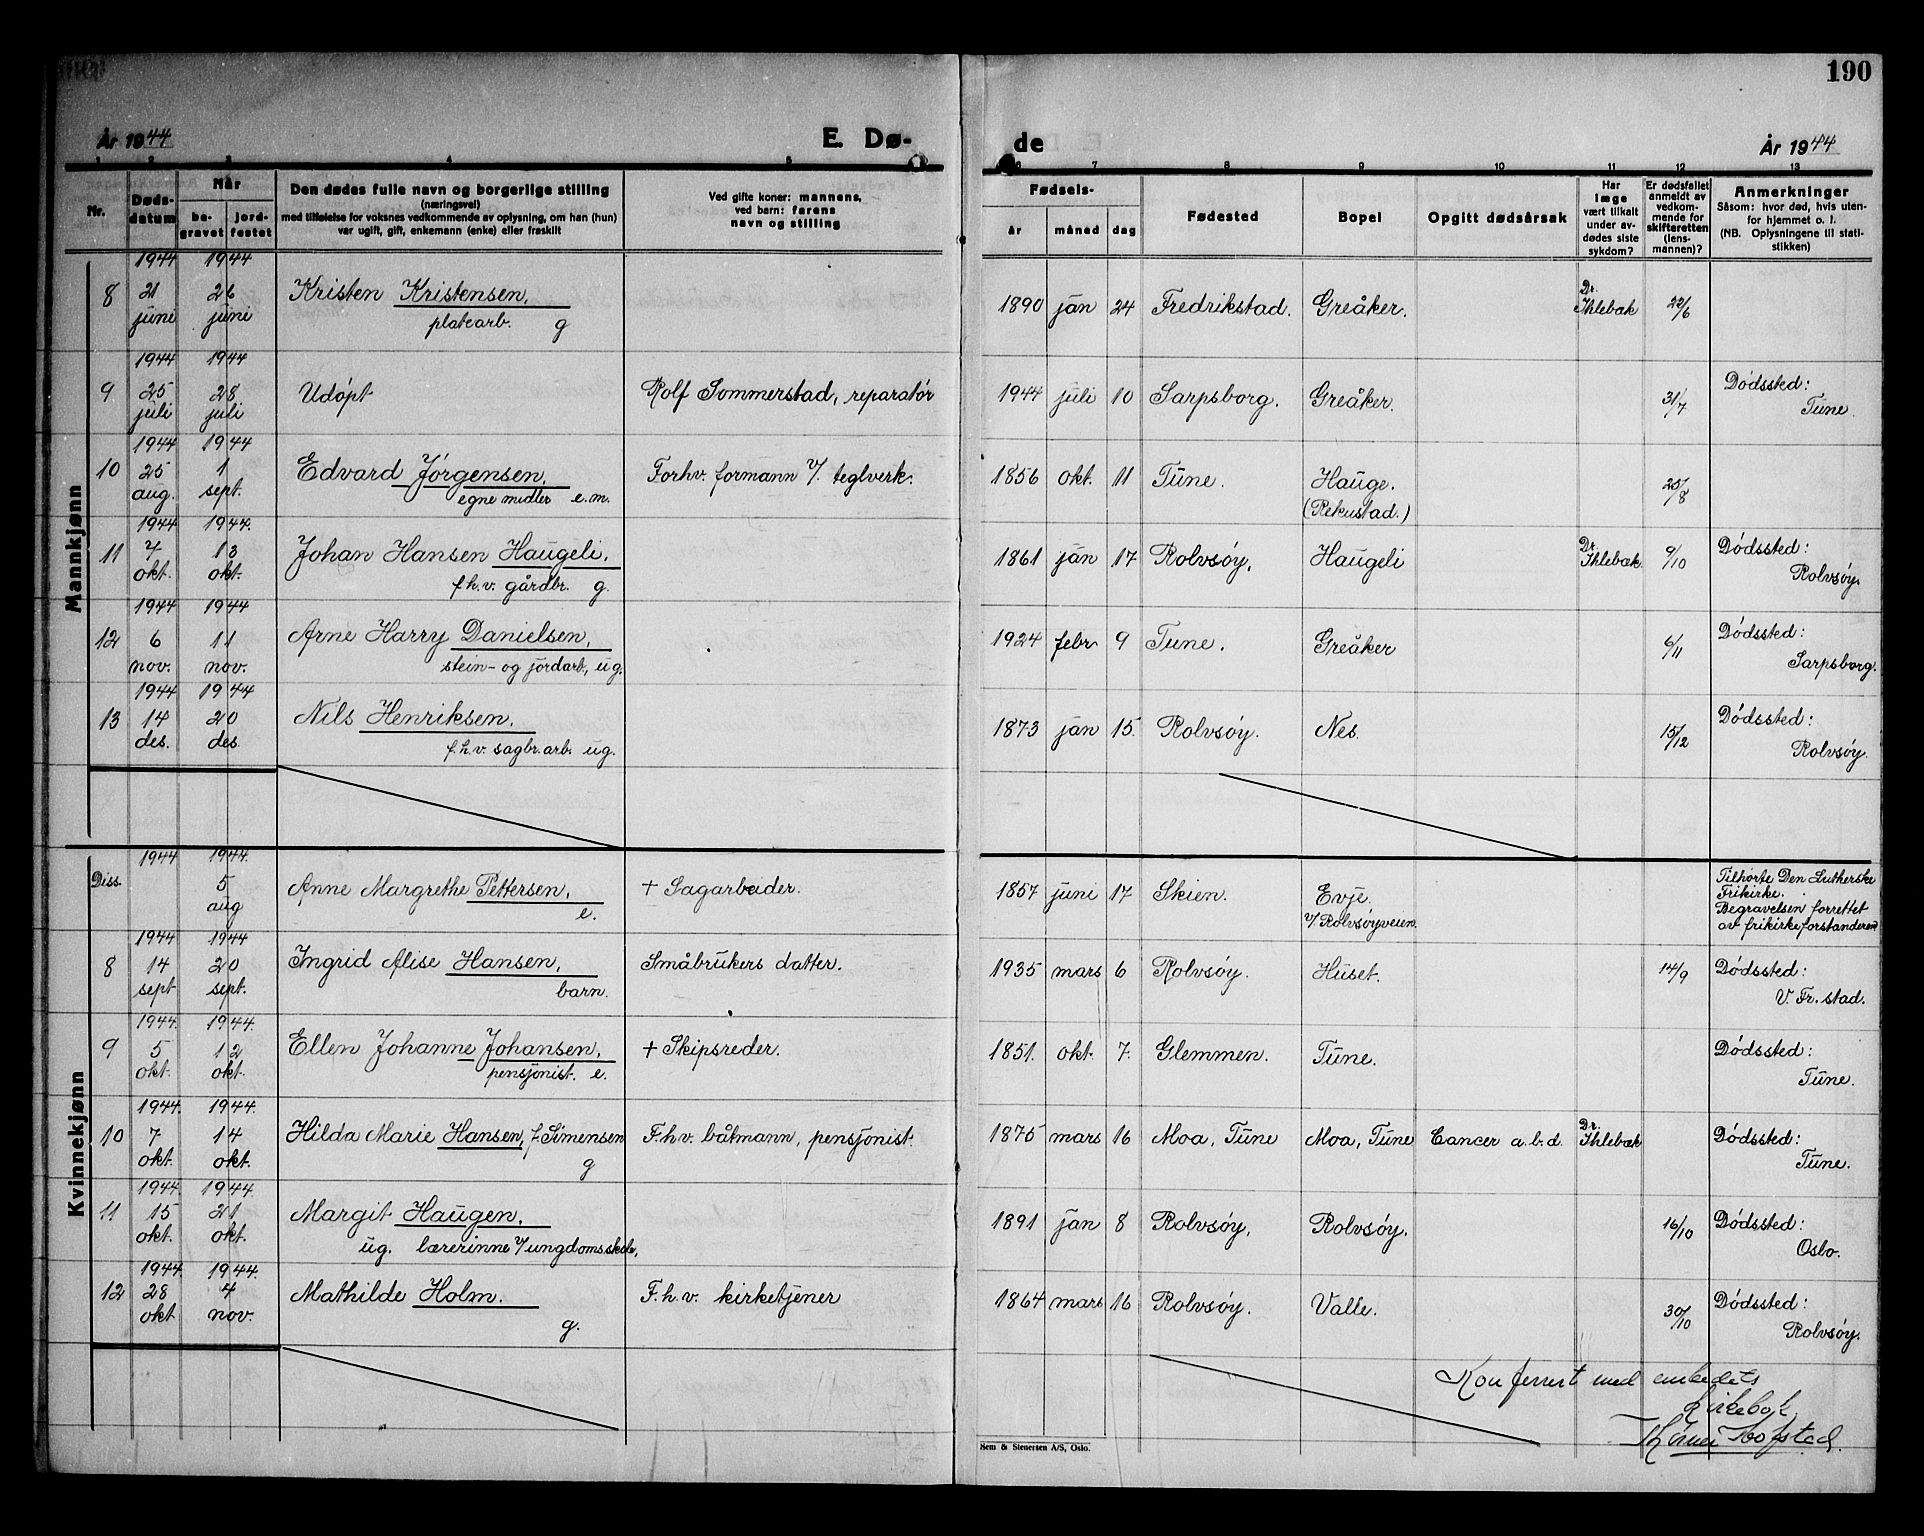 190
År 1944
E. Dø-
de
År 1944
1 2 3 4 5 6 7 8 9 10 11 12 13
Nr.
Døds-
datum
Når
be-
gravet
jord-
festet
Den dødes fulle navn og borgerlige stilling
(næringsvei)
med tilføielse for voksnes vedkommende av oplysning, om han (hun)
var ugift, gift, enkemann (enke) eller fraskilt
Ved gifte koner: mannens,
ved barn: farens
navn og stilling
Fødsels-
år
måned
dag
Fødested
Bopel
Opgitt dødsårsak
Har
læge
vært tilkalt
under av-
dødes siste
sykdom?
Er dødsfallet
anmeldt av
vedkom-
mende for
skifteretten
(lens-
mannen)?
Anmerkninger
Såsom: hvor død, hvis uten-
for hjemmet o. l.
(NB. Oplysningene til stati-
stikken)
Mannkjønn
1944 1944
8 21 juni 26 juni Kristen Kristensen, 1890 jan 24 Fredrikstad. Greåker. Dr. Ihlebæk 22/6
platearb. g
1944 1944
9 25 juli 28 juli Udøpt Rolf Sommerstad, reparatør 1944 juli 10 Sarpsborg. Greåker. 31/7 Dødssted:
Tune.
1944 1944
10 25 aug. 1 sept. Edvard Jørgensen, Forhv. formann v/. teglverk. 1856 okt. 11 Tune. Hauge. 25/8
egne midler e.m. (Rekustad.)
1944 1944.
11 7 okt. 13 okt. Johan Hansen Haugeli, 1861 jan 17 Rolvsøy. Haugeli Dr. Ihlebæk 9/10 Dødssted:
f.h.v. gårdbr. g. Rolvsøy.
1944 1944
12 6 nov. 11 nov. Arne Harry Danielsen, 1924 febr 9 Tune. Greåker 6/11 Dødssted:
stein- og jordarb., ug. Sarpsborg.
1944 1944
13 14 des. 20 des. Nils Henriksen. 1873 jan 15. Rolvsøy. Nes. 15/12 Dødssted:
f.h.v. sagbr.arb. ug. Rolvsøy.
Kvinnekjønn
1944 1944.
Diss. 5 aug Anne Margrethe Pettersen, + Sagarbeider. 1857 juni 17 Skien. Evje. Tilhørte Den Lutherske
e. v/ Rolvsøyveien. Frikirke.
Begravelsen forrettet
av frikirkeforstanderen
1944 1944
8 14 sept 20 sept. Ingrid Alise Hansen, Småbrukers datter. 1935 mars 6 Rolvsøy. Huset. 14/9 Dødssted:
barn. V. Fr. stad.
1944. 1944.
9 5 okt. 12 okt. Ellen Johanne Johansen, + Skipsreder. 1851. okt. 7. Glemmen. Tune. Dødssted:
pensjonist. e. Tune.
1944. 1944.
10 7 okt. 14 okt. Hilda Marie Hansen, f. Simensen F.h.v. båtmann, pensjonist. 1875 mars 16 Moa, Tune Moa, Tune Cancer a.b.d. Dr. Ihlebæk Dødssted:
g Tune.
1944. 1944.
11 15 okt. 21 okt. Margit Haugen. 1891 jan 8 Rolvsøy. Rolvsøy. 16/10 Dødssted:
ug. lærerinne v/ ungdomsskole, Oslo.
1944. 1944.
12 28 okt 4 nov. Mathilde Holm. F.h.v. kirketjener 1864 mars 16 Rolvsøy. Valle. 30/10 Dødssted:
g. Rolvsøy.
Konferert med embedets
kirkebok.
Hofstad.
Sem & Stenersen A/S, Oslo.